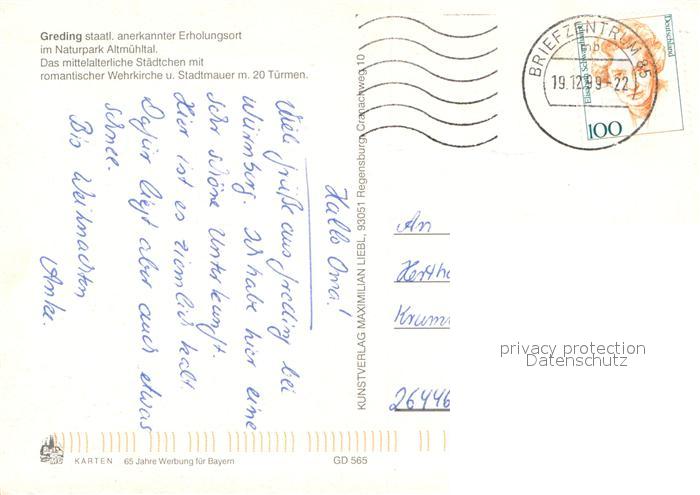 Greding staatl. anerkannter Erholungsort
im Naturpark Altmühltal.
Das mittelalterliche Städtchen mit
romantischer Wehrkirche u. Stadtmauer m. 20 Türmen.
Hallo Oma!
Viele Grüße aus Greding bei
Würnberg. Ich habe hier eine
sehr schöne Unterkunft.
Hier ist es ziemlich kalt
Dafür liegt aber auch etwas
Schnee.
Bis Weihnachten
Anke.
KUNSTVERLAG MAXIMILIAN LIEBL, 93051 Regensburg, Cranachweg 10
BRIEFZENTRUM 85
mb
19.12.99-22
Deutschland
100
An
Hertha
Krum
26446
privacy protection
Datenschutz
KARTEN 65 Jahre Werbung für Bayern
GD 565